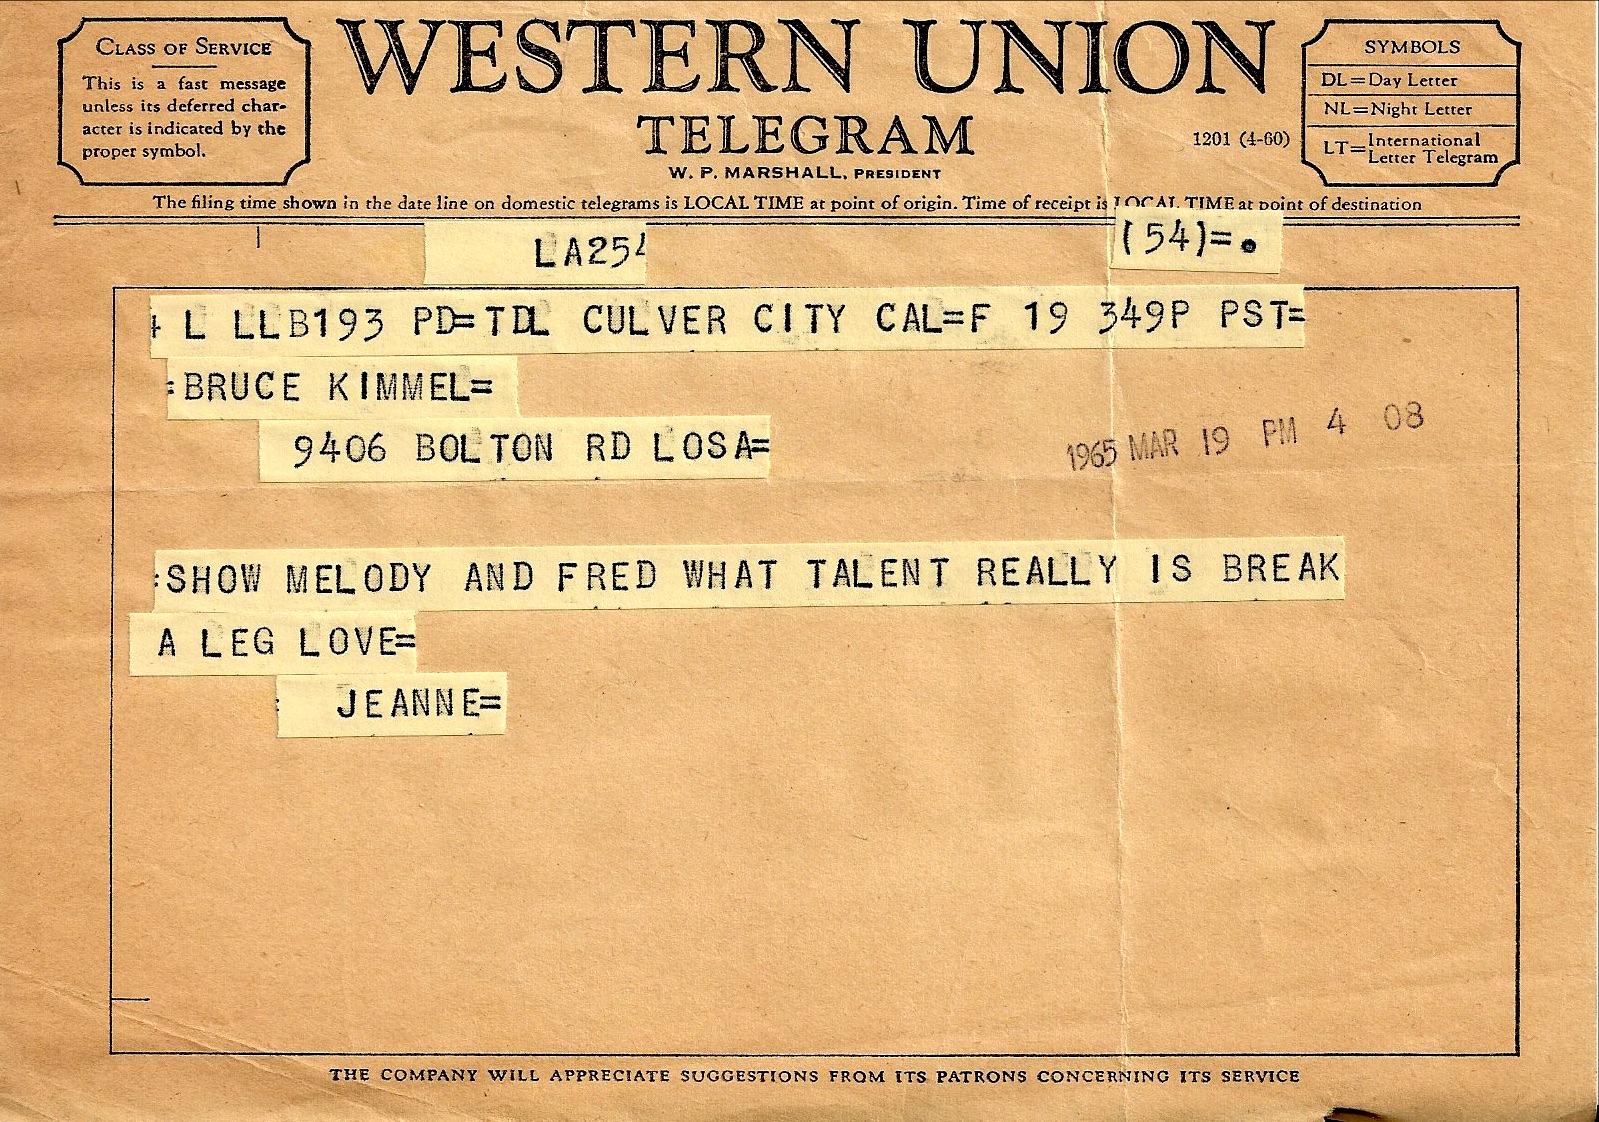 CLASS OF SERVICE
This is a fast message
unless its deferred char-
acter is indicated by the
proper symbol.
WESTERN UNION
TELEGRAM
W. P. MARSHALL, PRESIDENT
1201 (4-60)
SYMBOLS
DL=Day Letter
NL=Night Letter
LT=International Letter Telegram
The filing time shown in the date line on domestic telegrams is LOCAL TIME at point of origin. Time of receipt is LOCAL TIME at point of destination
LA254 (54)=.
L LLB193 PD=TDL CULVER CITY CAL=F 19 349P PST=
=BRUCE KIMMEL=
9406 BOLTON RD LOSA=
1965 MAR 19 PM 4 08
:SHOW MELODY AND FRED WHAT TALENT REALLY IS BREAK
A LEG LOVE=
: JEANNE=
THE COMPANY WILL APPRECIATE SUGGESTIONS FROM ITS PATRONS CONCERNING ITS SERVICE